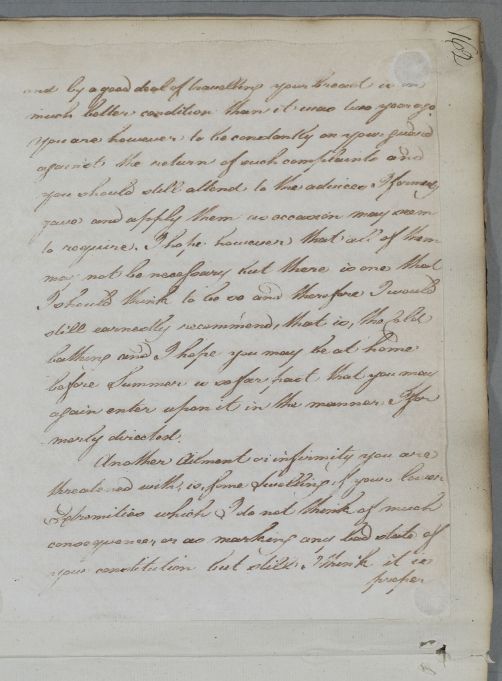 162
and by a good deal of travelling your breast is in
much better condition than it was two years ago.
You are however to be constantly on your guard
against the return of such complaints and
you should still attend to the advices I formerly
gave and apply them as occasion may seem
to require. I hope however that all of them
may not be necessary but there is one that
I should think to be so and therefore I would
still earnestly recommend, that is, the Cold
bathing and I hope you may be at home
before Summer is so far past that you may
again enter upon it in the manner I for
merly directed.
Another Ailment or infirmity you are
threatened with, is, some Swelling of your lower
extremities which I do not think of much
consequence, or as marking any bad state of
your constitution but still I think it is
proper